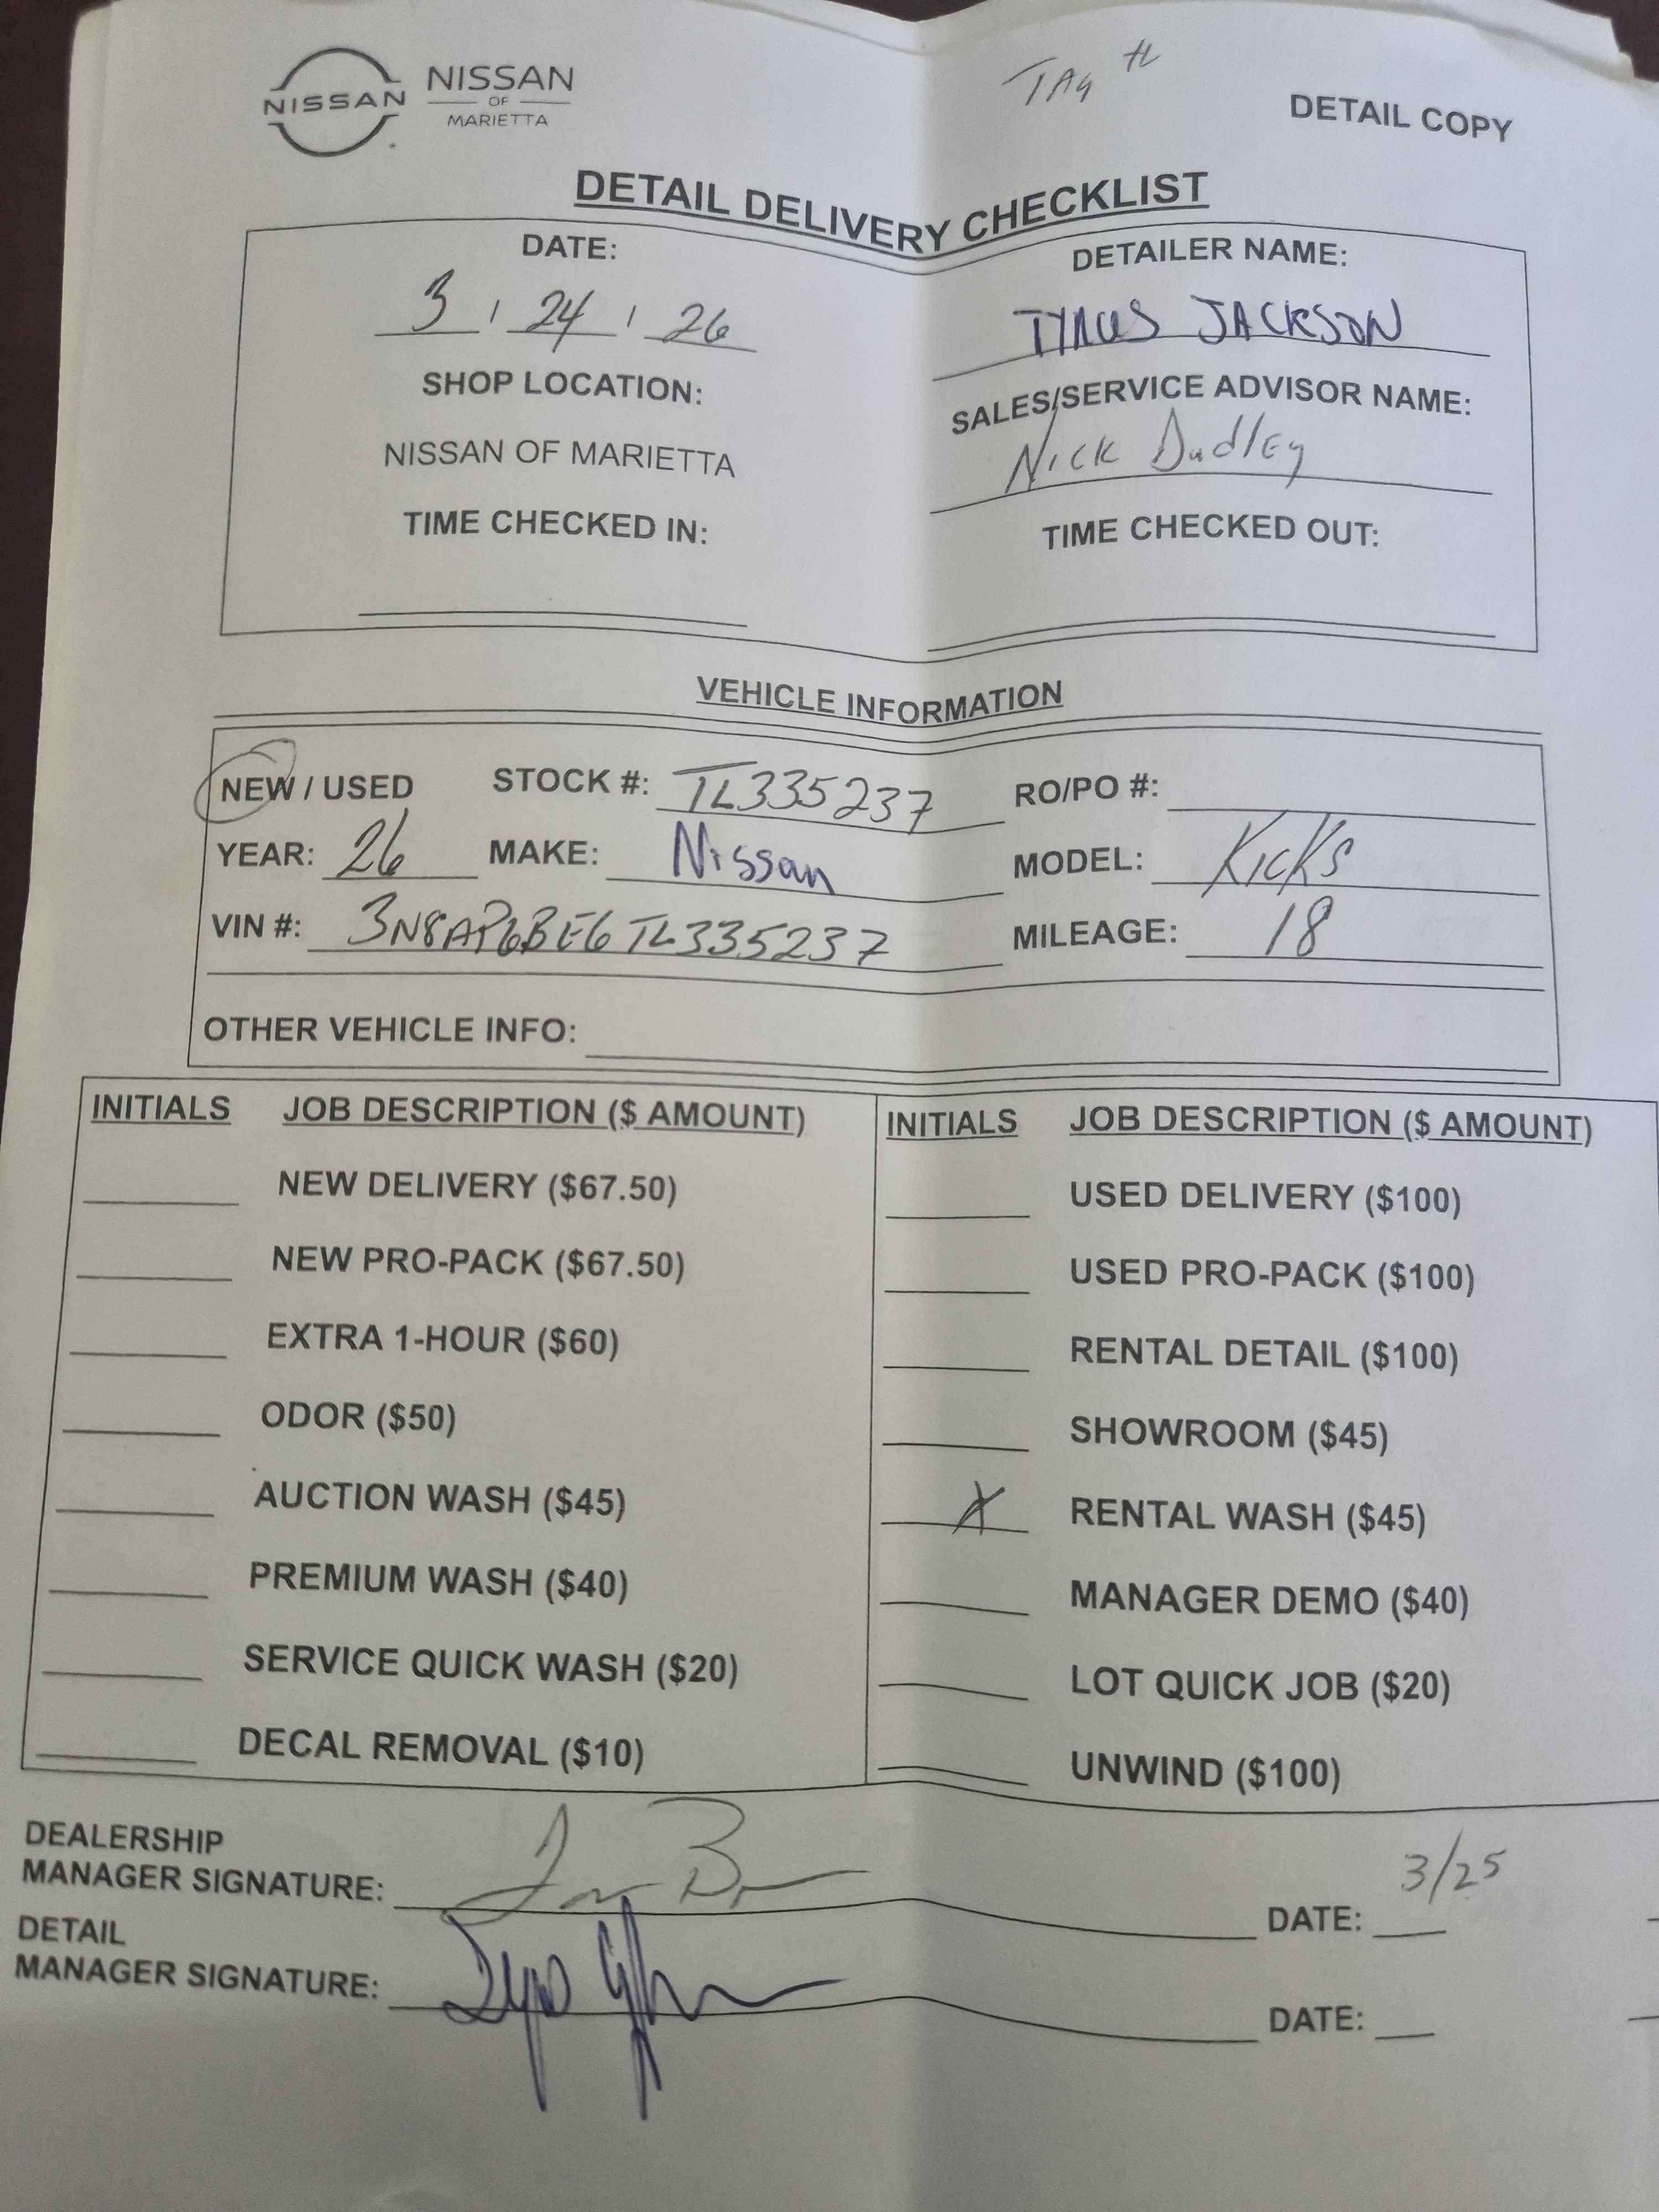 NISSAN NISSAN OF MARIETTA
TAG #
DETAIL COPY
DETAIL DELIVERY CHECKLIST
DATE: DETAILER NAME:
3 / 24 / 26 TYRUS JACKSON
SHOP LOCATION: SALES/SERVICE ADVISOR NAME:
NISSAN OF MARIETTA Nick Dudley
TIME CHECKED IN: TIME CHECKED OUT:
VEHICLE INFORMATION
NEW / USED STOCK #: TL335237 RO/PO #:
YEAR: 26 MAKE: Nissan MODEL: Kicks
VIN #: 3N8AP6BE6TL335237 MILEAGE: 18
OTHER VEHICLE INFO:
INITIALS JOB DESCRIPTION ($ AMOUNT) INITIALS JOB DESCRIPTION ($ AMOUNT)
NEW DELIVERY ($67.50) USED DELIVERY ($100)
NEW PRO-PACK ($67.50) USED PRO-PACK ($100)
EXTRA 1-HOUR ($60) RENTAL DETAIL ($100)
ODOR ($50) SHOWROOM ($45)
AUCTION WASH ($45) X RENTAL WASH ($45)
PREMIUM WASH ($40) MANAGER DEMO ($40)
SERVICE QUICK WASH ($20) LOT QUICK JOB ($20)
DECAL REMOVAL ($10) UNWIND ($100)
DEALERSHIP
MANAGER SIGNATURE: DATE: 3/25
DETAIL
MANAGER SIGNATURE: DATE: